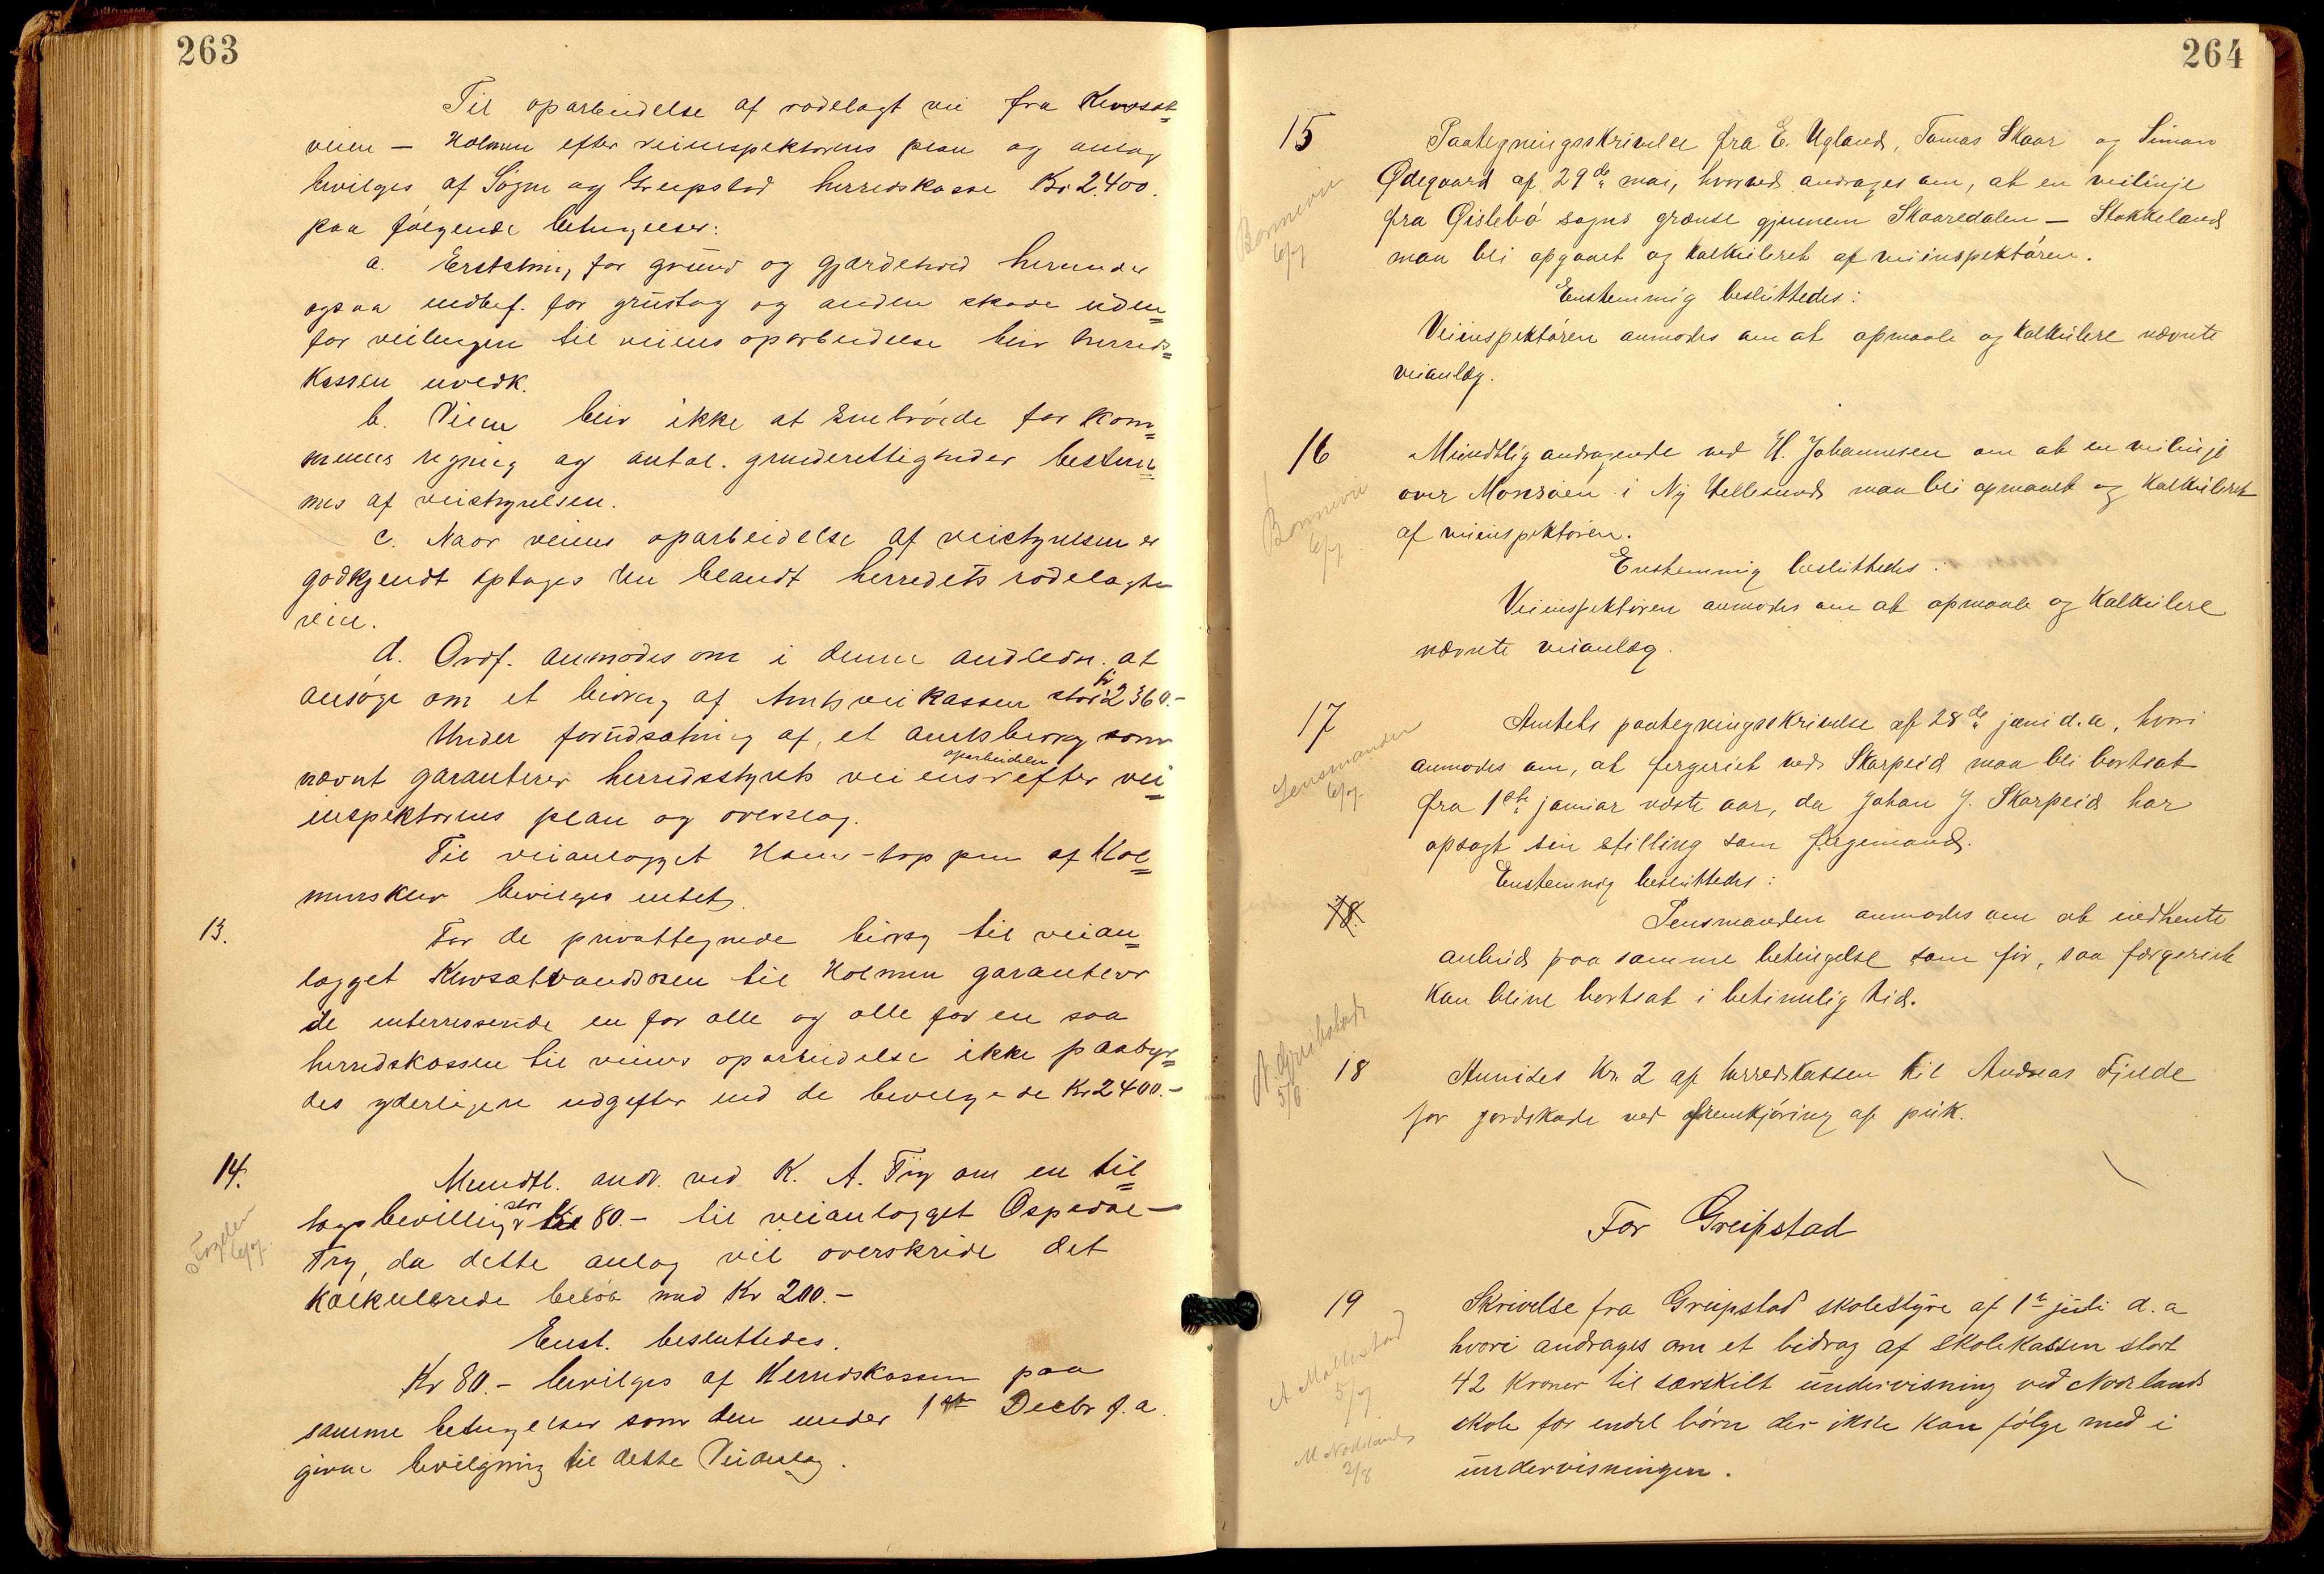 263
Til oparbeidelse af rodelagt vei fra Kvosæt=
veien — Holmen efter veiinspektørens plan og anlæg
bevilges af Søgne og Greipstad herredskasse Kr 2400.
paa følgende betingelser:
a. Erstatning for grund og gjærdehold herunder
ogsaa indbef. for grustag og anden skade uden=
for veilinjen til veiens oparbeidelse blir herreds=
kassen uvedk.
b. Veien blir ikke at snebrøide for kom=
munens regning og antal. grinderettigheder bestem=
mes af veistyrelsen.
c. Naar veiens oparbeidelse af veistyrelsen er
godkjendt optages den blandt herredets rodelagte
veie.
d. Ordf. anmodes om i denne anledn. at
ansøge om et bidrag af Amtsveikassen stort kr 2360.-
Under forudsætning af, et amtsbidrag som
nævnt garanterer herredsstyret veiens oparbeidelse efter vei=
inspektørens plan og overslag.
Til veianlægget Homs-toppen af Hol=
menskleiv bevilges intet.
13.
For de privattegnede bidrag til veian=
lægget Kvosætvandosen til Holmen garanterer
de interesserede en for alle og alle for en saa
herredskassen til veiens oparbeidelse ikke paabyr=
des yderligere udgifter end de bevilgede Kr 2400.-
14.
Mundtl. andr. ved K. A. Try om en til=
lægsbevilling stor Kr 80.- til veianlægget Ospedal—
Try, da dette anlæg vil overskride det
kalkulerede beløb med Kr 200.-
Fogden
6/7.
Enst. besluttedes.
Kr 80.- bevilges af Herredskassen paa
samme betingelser som den under 1ste Decbr f.a.
givne bevilgning til dette Veianlæg.
264
15
Paategningsskrivelse fra E. Ugland, Tomas Skaar og Simon
Ødegaard af 29de mai, hvorved andrages om, at en veilinje
fra Øislebø sogns grænse gjennem Skaaredalen — Stokkeland
maa bli opgaaet og kalkuleret af veiinspektøren.
Bonnevie
6/7
Enstemmig besluttedes:
Veiinspektøren anmodes om at opmaale og kalkulere nævnte
veianlæg.
16
Mundtlig andragende ved H. Johannesen om at en veilinje
over Monsøien i Ny Hellesund maa bli opmaalt og kalkuleret
af veiinspektøren.
Bonnevie
6/7
Enstemmig besluttedes:
Veiinspektøren anmodes om at opmaale og kalkulere
nævnte veianlæg.
17
Amtets paategningsskrivelse af 28de juni d.a, hvori
anmodes om, at fergeriet ved Skarpeid maa bli bortsat
fra 1ste januar næste aar, da Johan J. Skarpeid har
opsagt sin stilling som fergemand.
Lensmanden
6/7.
Enstemmig besluttedes:
18.
Lensmanden anmodes om at indhente
anbud paa samme betingelse som før, saa færgeriet
kan blive bortsat i betimelig tid.
A. Greibstad
5/8
18
Anvises Kr. 2 af herredskassen til Andreas Fjelde
for jordskade ved fremkjøring af puk.
For Greipstad
19
Skrivelse fra Greipstad skolestyre af 1ste juli d.a
hvori andrages om et bidrag af skolekassen stort
42 kroner til særskilt undervisning ved Nodelands
skole for endel børn der ikke kan følge med i
undervisningen.
A Mollestad
5/7
M Nodeland
2/8